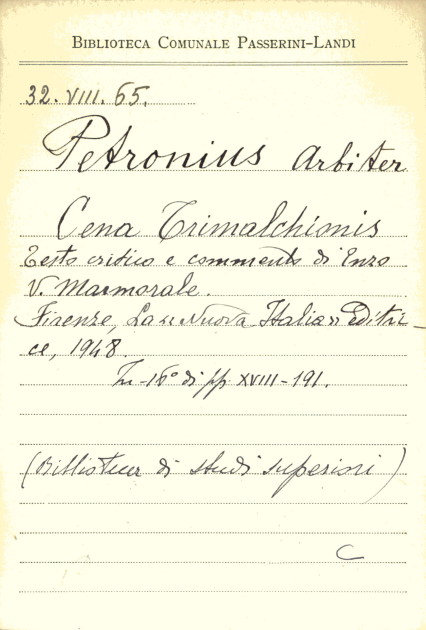 BIBLIOTECA COMUNALE PASSERINI-LANDI
32. VIII. 65.
Petronius Arbiter
Cena Trimalchionis
Testo critico e commento di Enzo
V. Marmorale.
Firenze, La "Nuova Italia" editri-
ce, 1948.
In-16° di pp. XVIII-191.
(Biblioteca di studi superiori)
C